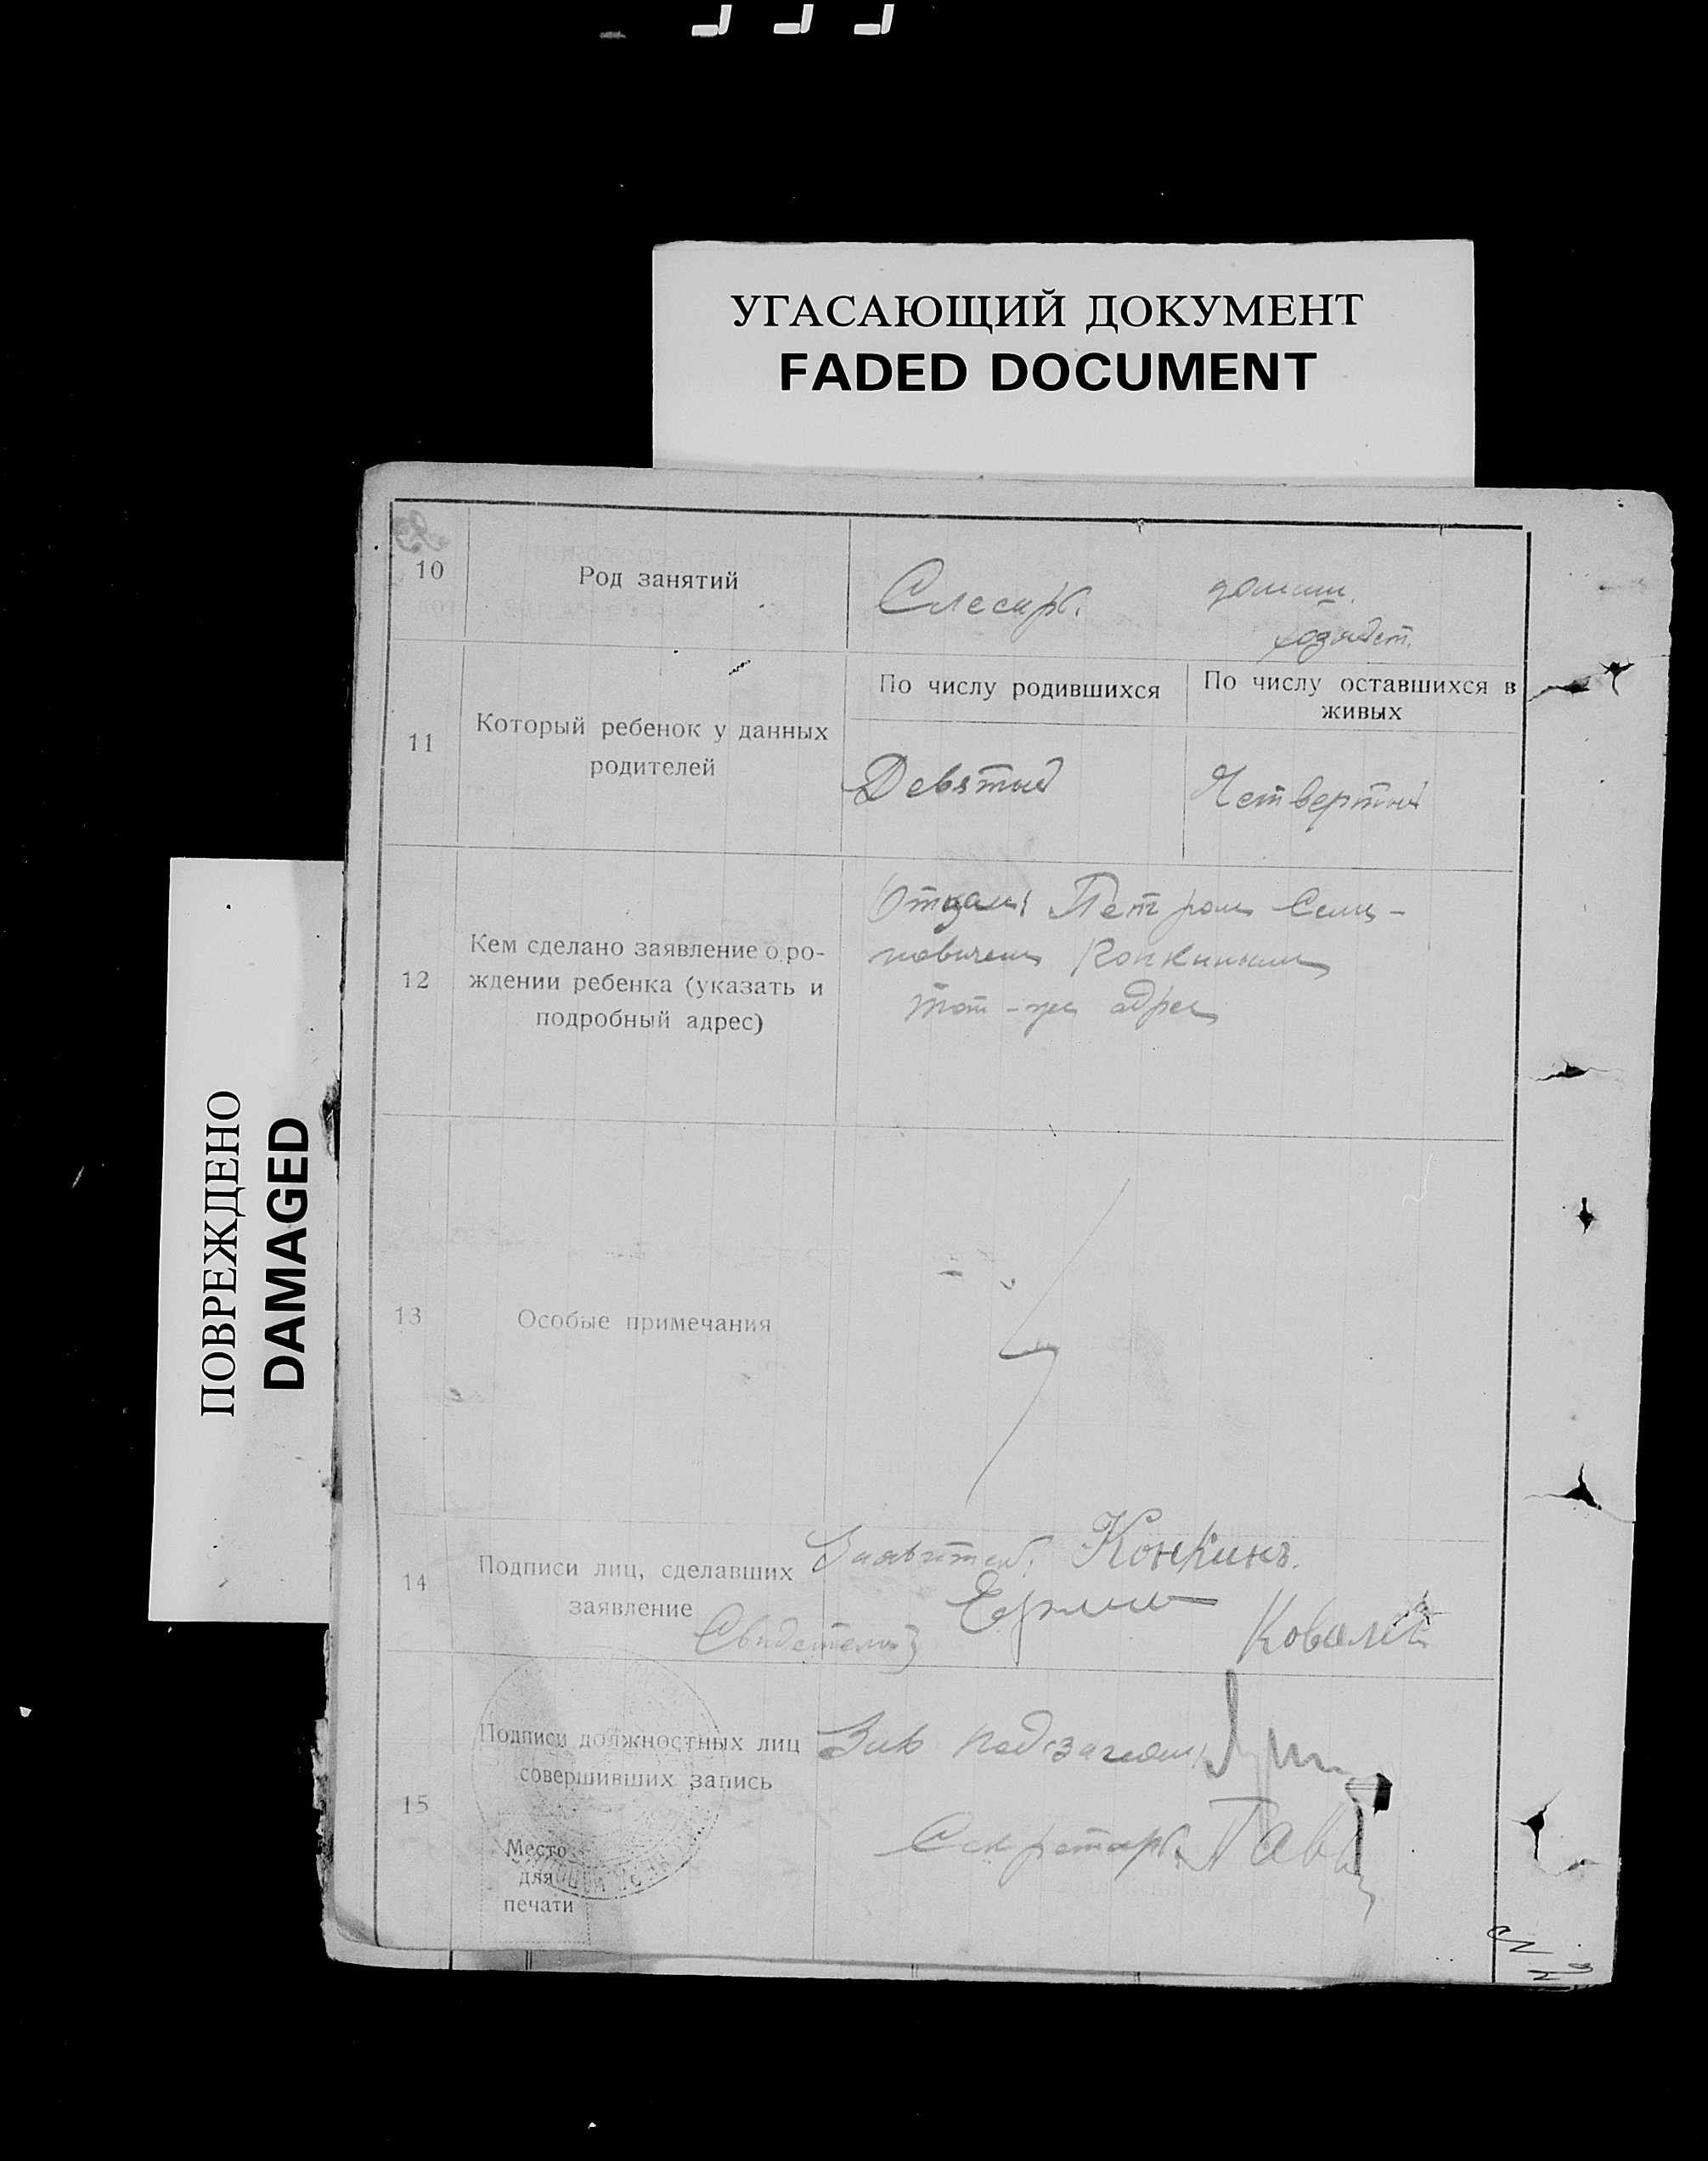 УГАСАЮЩИЙ ДОКУМЕНТ
FADED DOCUMENT
ПОВРЕЖДЕНО
DAMAGED
10
Род занятий
Слесарь.
домаш.
хозяйст.
11
Который ребенок у данных
родителей
По числу родившихся
По числу оставшихся в
живых
Девятый
Четвертый
12
Кем сделано заявление о ро-
ждении ребенка (указать и
подробный адрес)
Отцом Петром Семе-
новичем Конкиным
тот-же адрес
13
Особые примечания
14
Подписи лиц, сделавших
заявление
Заявитель Конкинъ.
Свидетели
15
Подписи должностных лиц
совершивших запись
Зав
Секретарь
Место
для
печати